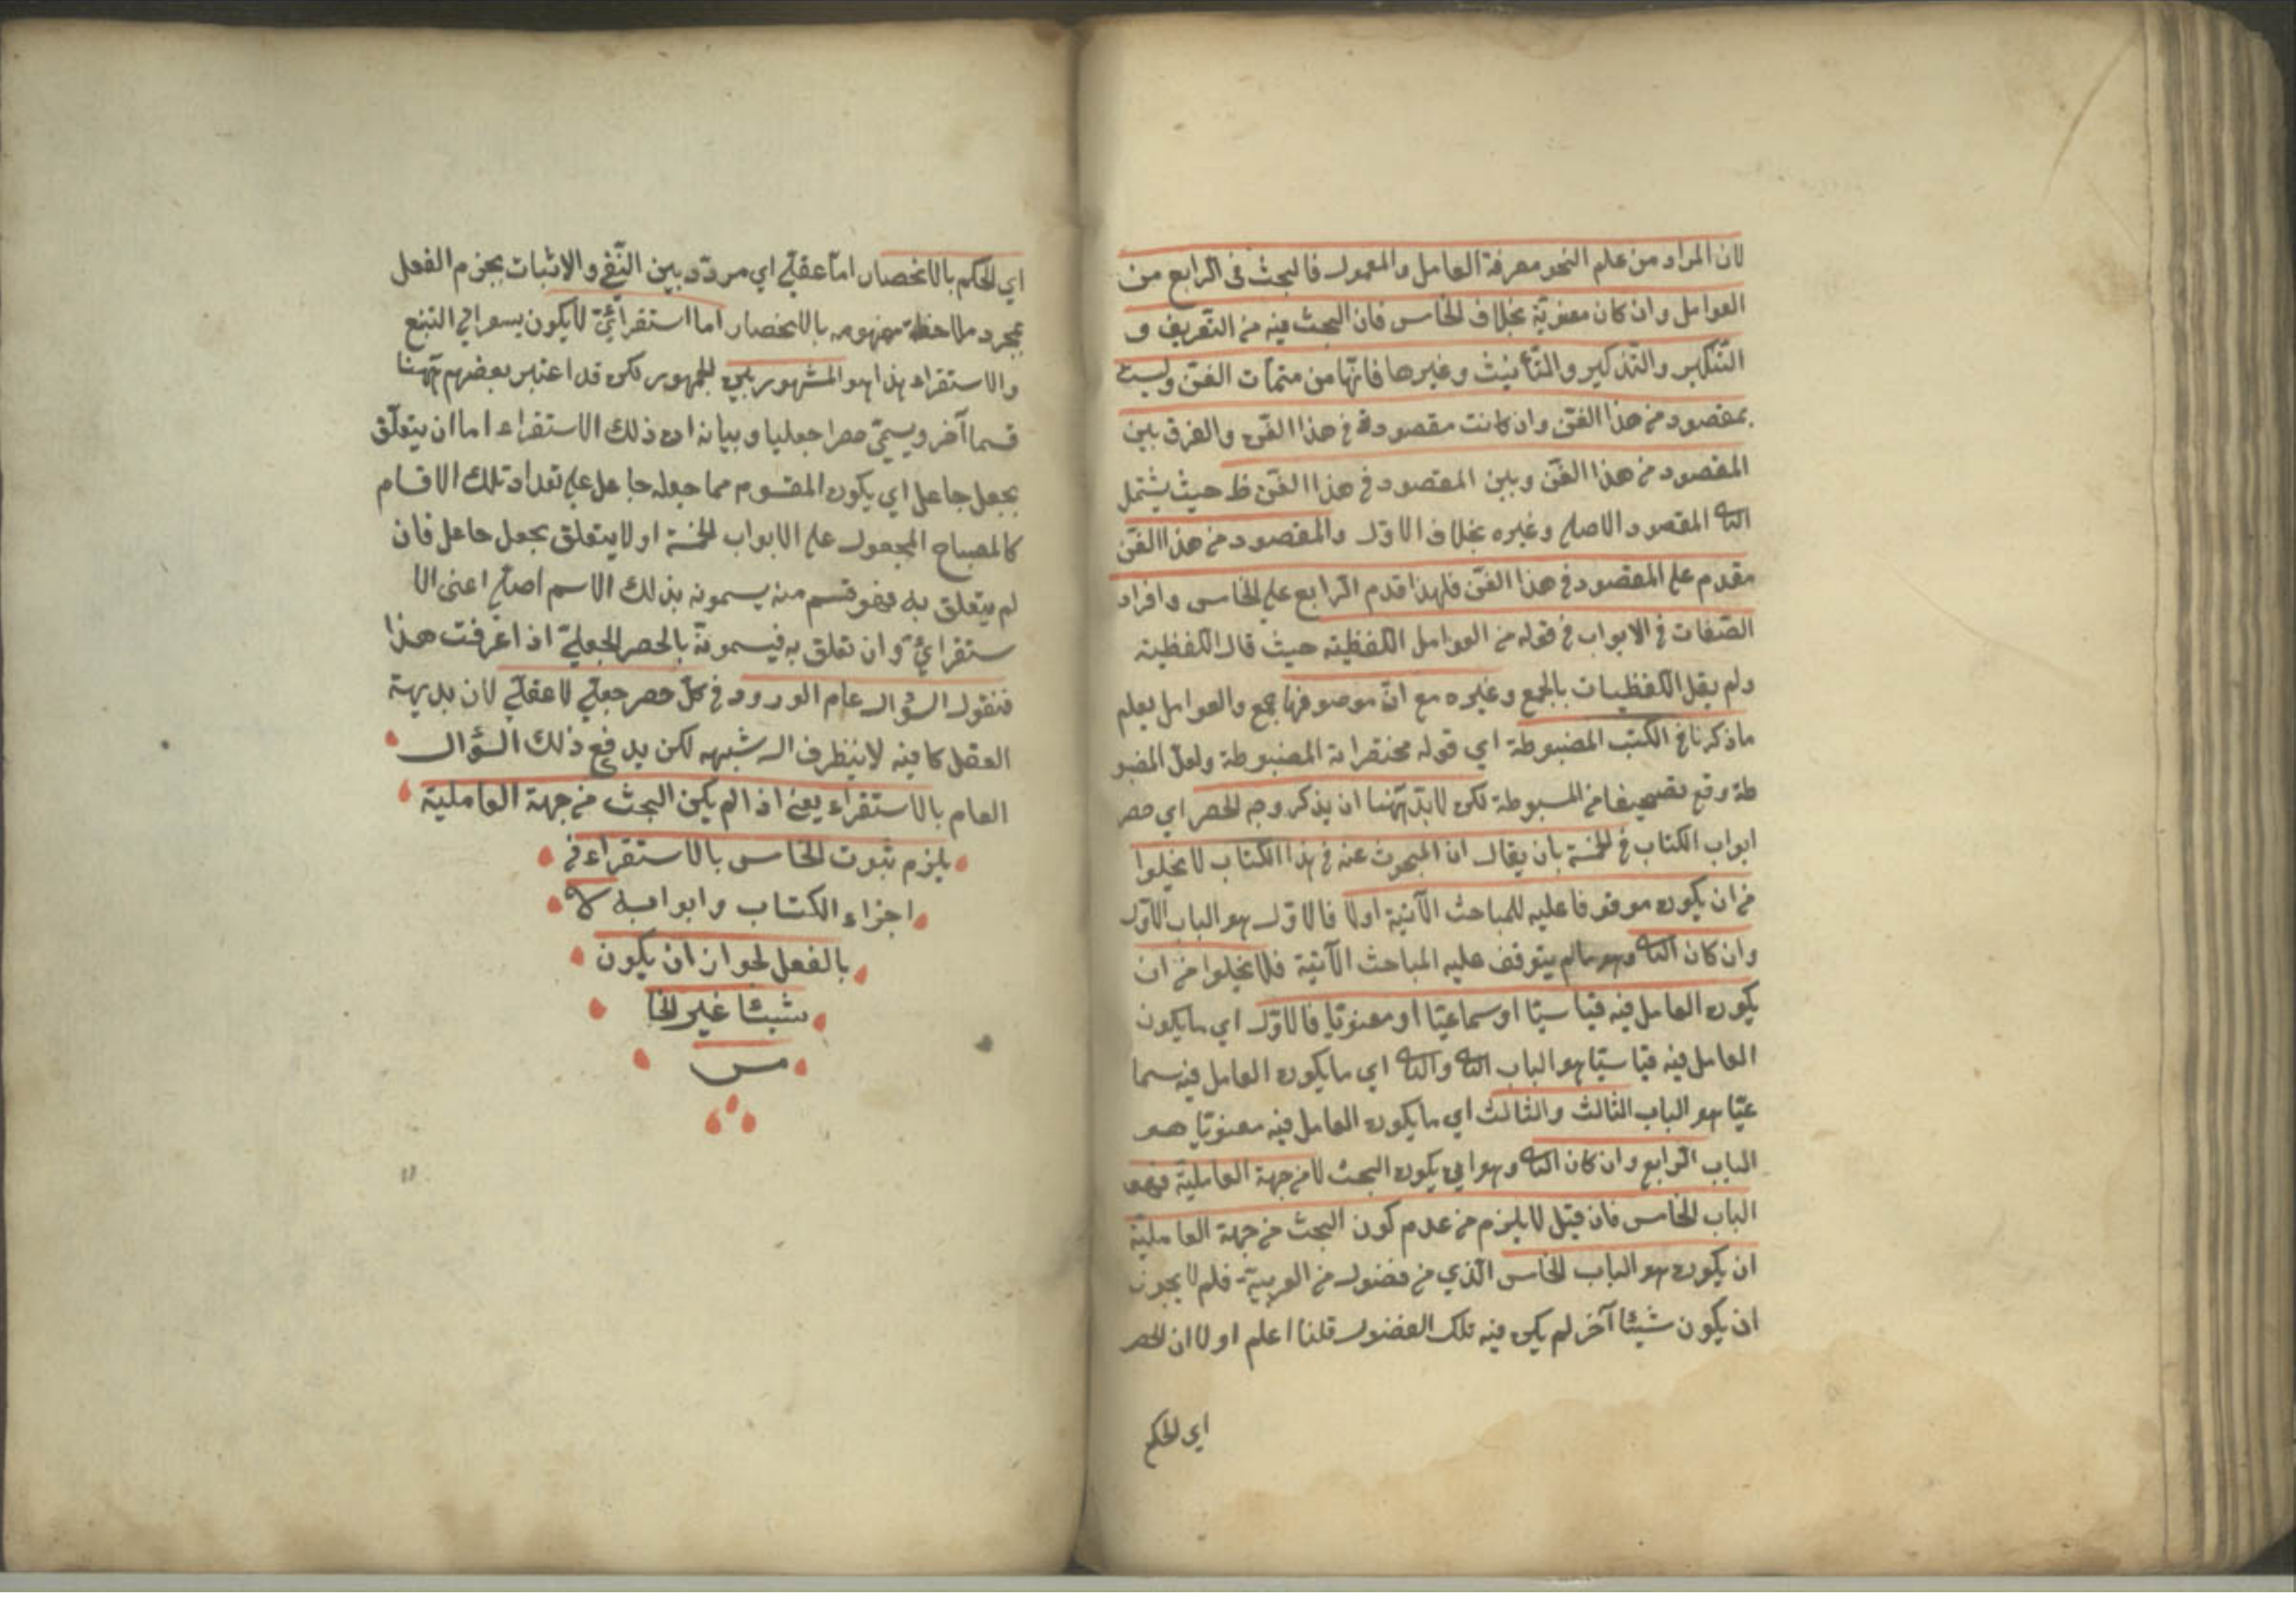 لان المراد من علم النحو معرفة العامل والمعمول فالبحث فى الرابع من
العوامل وان كان معنوية بخلاف الخامس فان البحث فيه من التعريف و
التنكير والتذكير والتأنيث وغيرها فانها من متمات الفن وليست
بمقصود من هذا الفن وان كانت مقصودة في هذا الفن والفرق بين
المقصود من هذا الفن وبين المقصود في هذا الفن ظ حيث يشتمل
الثا المقصود الاصلي وغيره بخلاف الاول والمقصود من هذا الفن
مقدم على المقصود في هذا الفن فلهذا قدم الرابع على الخامس وافراد
الصفات في الابواب في قوله من العوامل اللفظية حيث قال اللفظية
ولم يقل اللفظيات بالجمع وغيره مع ان موصوفها جمع والعوامل يعلم
ماذكرنا في الكتب المضبوطة اي قوله مختصراته المضبوطة ولعل المضبو
طة وقع تصحيفا من المبسوطة لكن لابد ههنا ان يذكر وجه الحصر اي حصر
ابواب الكتاب في الخمسة بان يقال ان المبحوث عنه في هذا الكتاب لا يخلوا
من ان يكون موقوفا عليه للمباحث الآتية اولا فالاول هو الباب الاول
وان كان الثا وهو مالم يتوقف عليه المباحث الآتية فلا يخلوا من ان
يكون العامل فيه قياسيا او سماعيا او معنويا فالاول اي ما يكون
العامل فيه قياسيا هو الباب الثا والثا اي ما يكون العامل فيه سما
عيا هو الباب الثالث والثالث اي ما يكون العامل فيه معنويا هو
الباب الرابع وان كان الثا وهو اي يكون البحث لا من جهة العاملية فهو
الباب الخامس فان قيل لا يلزم من عدم كون البحث من جهة العاملية
ان يكون هو الباب الخامس الذي من فضول من العربية فلم لا يجوز
ان يكون شيئا آخر لم يكن فيه تلك الفضول قلنا اعلم اولا ان الحصر
اي الحكم
اي الحكم بالانحصار اما عقلي اي مردد بين النفي والاثبات يجزم العقل
بمجرد ملاحظة مفهومه بالانحصار اما استقرائي لا يكون الى التبع
والاستقراء هذا هو المشهور بين الجمهور لكن قد اعتبر بعضهم ههنا
قسما آخر ويسمى حصرا جعليا وبيانه ان ذلك الاستقراء اما ان يتعلق
بجعل جاعل اي يكون المقسوم مما جعله جاعل على تعداد تلك الاقسام
كالمصباح المجعول على الابواب الخمسة او لا يتعلق بجعل جاعل فان
لم يتعلق به فهو قسم منه يسمونه بذلك الاسم اصلي اعنى الا
ستقرائي وان تعلق به فيسمونه بالحصر الجعلي اذا عرفت هذا
فنقول السؤال عام الورود في كل حصر جعلي لا عقلي لان بديهة
العقل كافيه لا شبهه لكن يدفع ذلك السؤال
العام بالاستقراء يعني اذا لم يكن البحث من جهة العاملية
يلزم ثبوت الخامس بالاستقراء في
اجزاء الكتاب وابوابه لا
بالفعل لجواز ان يكون
شيئا غير الخا
مس